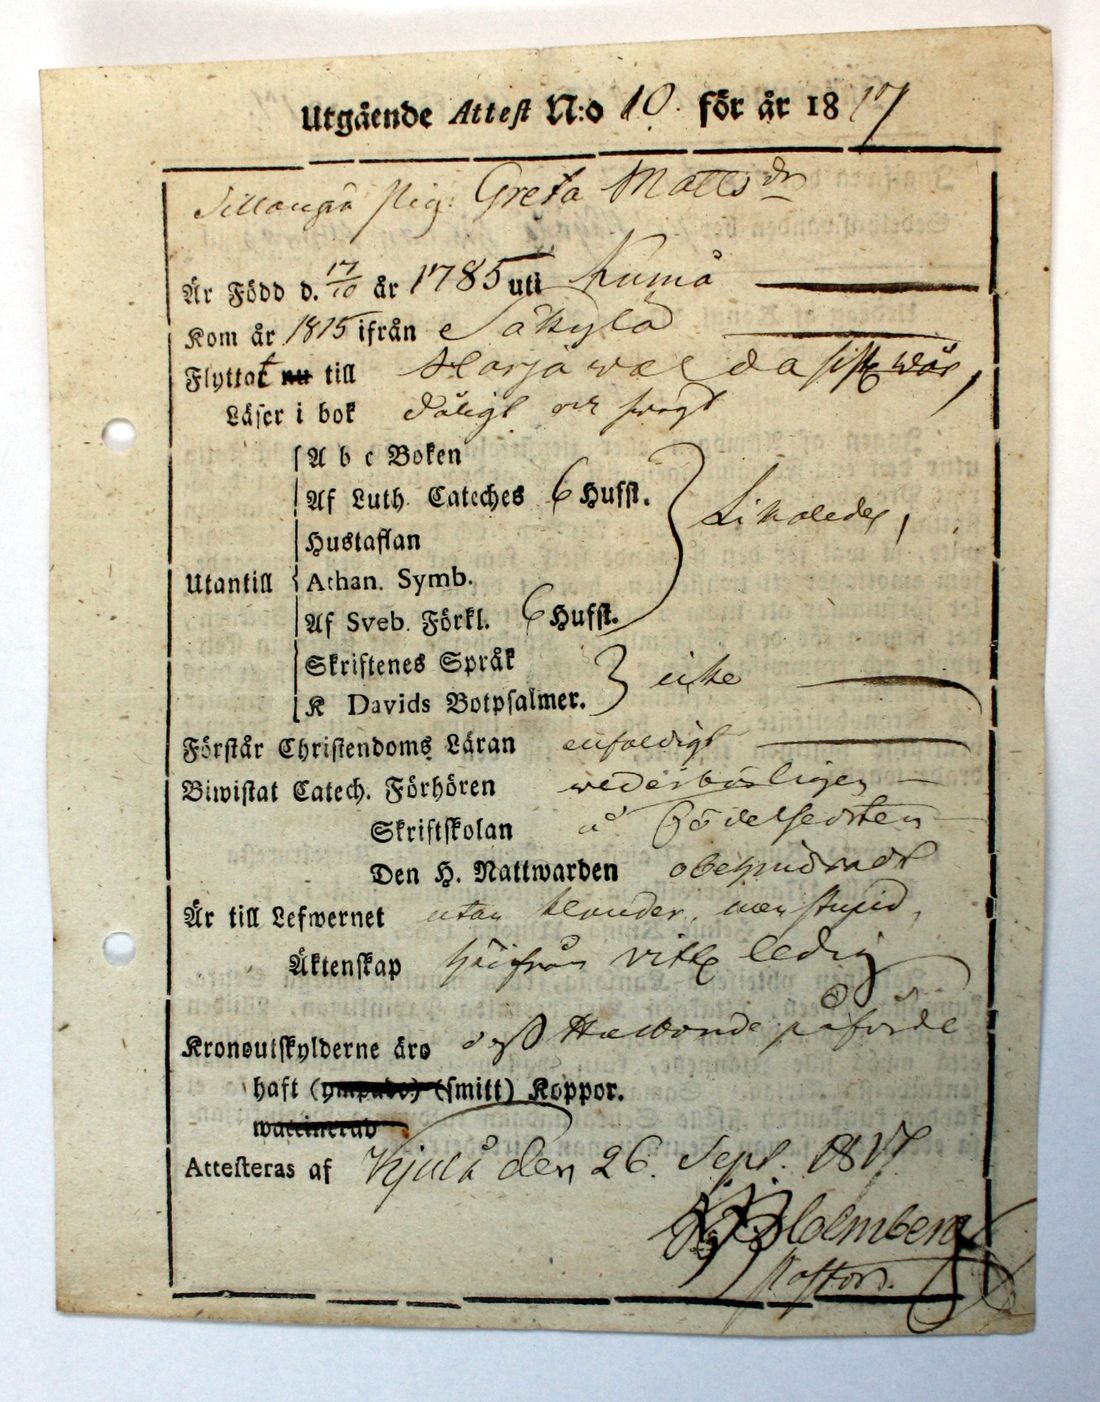 Utgående Attest N:o 10. för år 1817
Pig. Greta Mattsdr
Är Född d. 17/10 år 1785 uti Kumå
Kom år 1815 ifrån Säkylä
Flyttat nu till Harjawal da sistl. wår,
Läser i bok dåligt och swagt
A b c Boken
Af Luth. Cateches 6 Hufst.
Hustaflan
Likaledes,
Utantill
Athan. Symb.
Af Sveb. Förkl. 6 Hufst.
Skriftenes Språk
icke
K Davids Botpsalmer.
Förstår Christendoms Läran enfaldigt
Biwistat Catech. Förhören wederbörligen
Skriftskolan å Födelseorten
Den H. Nattwarden obehindradt
Är till Lefwernet utan klander, men stupid,
Äktenskap härifrån vitt. ledig
Kronoutskylderne äro påförde
haft (ympade) (smitt) Koppor.
waccinerad
Attesteras af Kjulå den 26. Sept. 1817
Holmberg
Pastor.